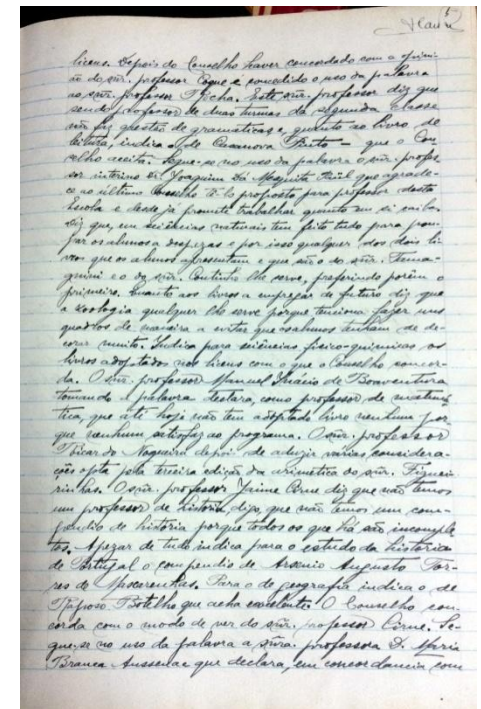 liceus. Depois do Conselho haver concordado com a opini-
ão do snr. professor Coque é concedido o uso da palavra
ao snr. professor Rocha. Este snr. professor diz que
sendo professor de duas turmas da segunda classe
não faz questão de gramaticas e, quanto ao livro de
leitura, indica o de Casanova Pinto — que o Con-
selho aceita. Segue-se no uso da palavra o snr. profes-
sor interino Dr. Joaquim Sá Mesquita que agrade-
ce ao último Conselho tê-lo proposto para professor desta
Escola e desde já promete trabalhar quanto em si caiba.
Diz que, em sciências naturais tem feito tudo para pou-
par os alunos a despezas e por isso qualquer dos dois li-
vros que os alunos apresentam e que são o do snr.
e o do snr. Coutinho lhe serve, preferindo porém o
primeiro. Quanto aos livros a empregar de futuro diz que
a zoologia qualquer lhe serve porque tenciona fazer uns
quadros de maneira a evitar que os alunos tenham de de-
corar muito. Indica para sciências fisico-quimicas os
livros adoptados nos liceus com o que o Conselho concor-
da. O snr. professor Manuel Inácio de Boaventura
tomando a palavra declara, como professor de matemá
tica, que até hoje não tem adoptado livro nenhum por
que nenhum satisfaz ao programa. O snr. professor
Ricardo Nogueira depois de aduzir várias considera-
ções opta pela terceira edição da aritmética do snr. Figuei-
rinhas. O snr. professor Jaime Cirne diz que não temos
um professor de história, digo, que não temos um com-
pendio de história porque todos os que há são incomple
tos. Apezar de tudo indica para o estudo da história
de Portugal o compendio de Arsenio Augusto Tor-
res de Mascarenhas. Para o de geografia indica o de
Raposo Botelho que acha excelente. O Conselho con-
corda com o modo de ver do snr. professor Cirne. Se-
gue-se no uso da palavra a snra. professora D. Maria
Branca que declara, em concordancia com